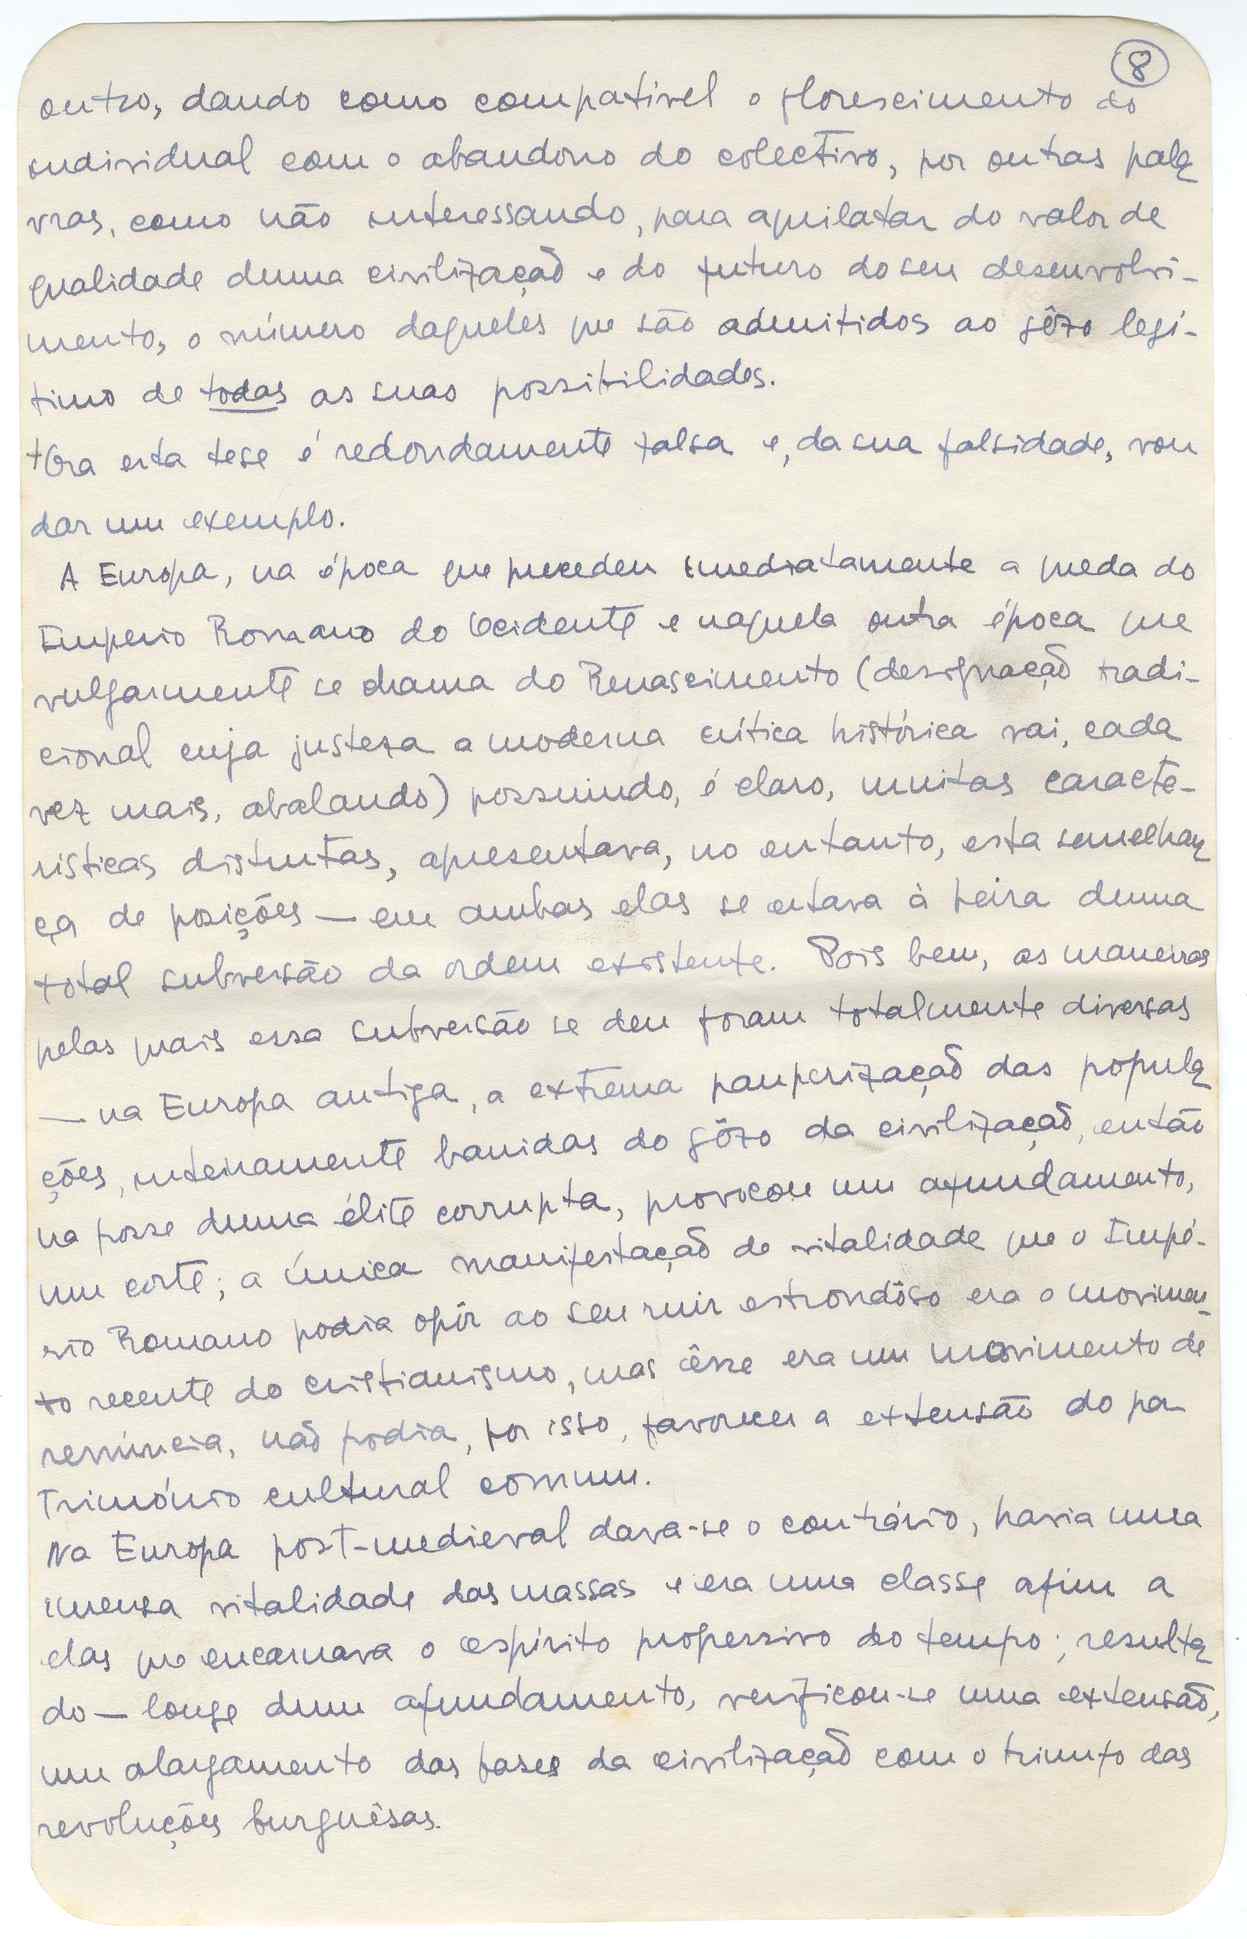 8
outro, dando como compatível o florescimento do
individual com o abandono do colectivo, por outras pala
vras, como não interessando, para aquilatar do valor de
qualidade duma civilização e do futuro do seu desenvolvi-
mento, o número daqueles que são admitidos ao gôzo legí-
timo de todas as suas possibilidades.
+Ora esta tese é redondamente falsa e, da sua falsidade, vou
dar um exemplo.
A Europa, na época que precedeu imediatamente a queda do
Imperio Romano do Ocidente e naquela outra época que
vulgarmente se chama do Renascimento (designação tradi-
cional cuja justeza a moderna crítica histórica vai, cada
vez mais, abalando) possuindo, é claro, muitas caracte-
rísticas distintas, apresentava, no entanto, esta semelhan
ça de posições — em ambas elas se estava à beira duma
total subversão da ordem existente. Pois bem, as maneiras
pelas quais essa subversão se deu foram totalmente diversas
— na Europa antiga, a extrema pauperização das popula
ções, inteiramente banidas do gôzo da civilização, então
na posse duma élite corrupta, provocou um afundamento,
um corte; a única manifestação de vitalidade que o Impé-
rio Romano podia opôr ao seu ruir estrondôso era o movimen
to recente do cristianismo, mas êsse era um movimento de
renúncia, não podia, por isso, favorecer a extensão do pa
trimónio cultural comum.
Na Europa post-medieval dava-se o contrário, havia uma
imensa vitalidade das massas e era uma classe afim a
elas que encarnava o espírito progressivo do tempo; resulta
do — longe dum afundamento, verificou-se uma extensão,
um alargamento das bases da civilização com o triunfo das
revoluções burguêsas.